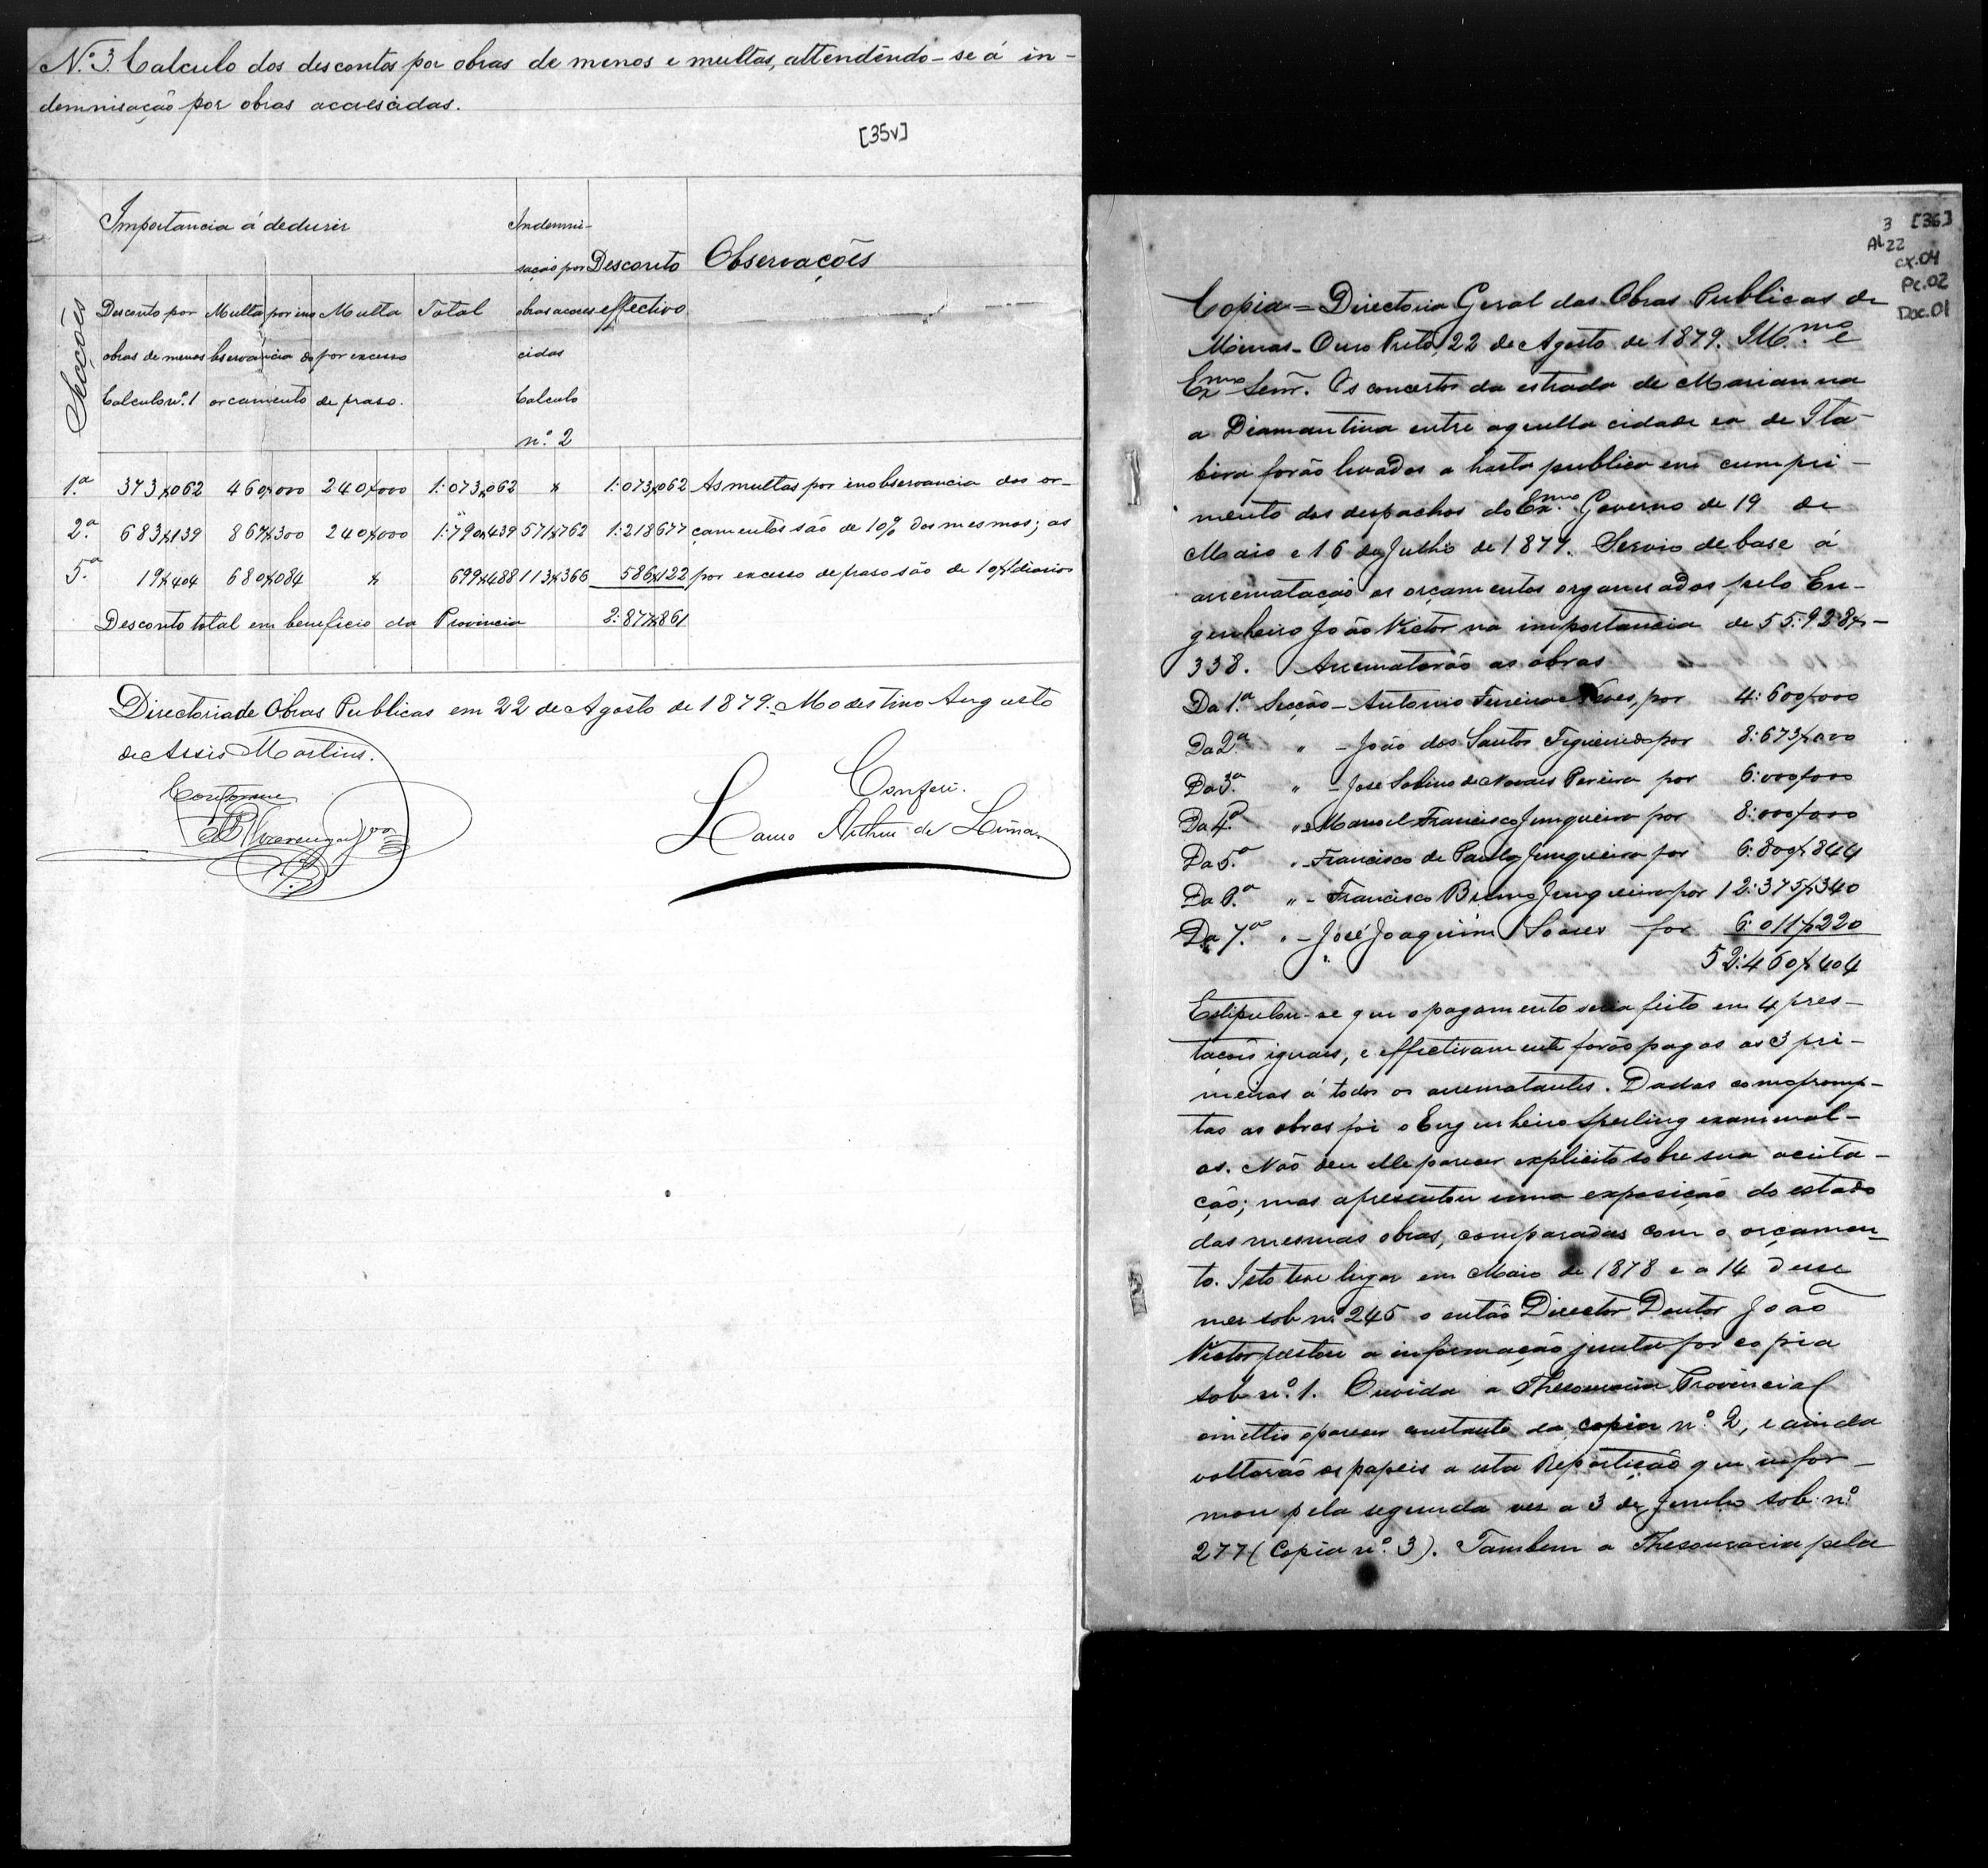 N.º 3. Calculo dos descontos por obras de menos e multas, attendendo-se á in-
demnisação por obras accrescidas.
[35v]
Secções
Importancia á dedusir
Indemni-
sação por
obras accres-
cidas
Calculo
n.º 2
Desconto
effectivo
Observações
Desconto por
obras de menos
Calculo n.º 1
Multa por ino
bservancia do
orcamento
Multa
por excesso
de praso.
Total
1.ª 373$062 460$000 240$000 1:073$062 x 1:073$062 As multas por inobservancia dos or-
2.ª 683$139 867$300 240$000 1:790$439 571$762 1:218677 çamentos são de 10% dos mesmos; as
5.ª 19$404 680$084 x 699$488 113$366 586$122 por excesso de praso são de 10$ diarios
Desconto total em beneficio da Provincia 2:877$861
Directoria de Obras Publicas em 22 de Agosto de 1879. Modestino Augusto
de Assis Martins.
Conforme
Conferi.
Lauro Arthur de Lima
3 [36]
AL22
cx.04
Pc.02
Doc.01
Copia = Directoria Geral das Obras Publicas de
Minas - Ouro Preto, 22 de Agosto de 1879. Ill.mo e
Ex.mo Senr. Os concertos da estrada de Marianna
a Diamantina entre aquella cidade e a de Ita-
bira forão levados a hasta publica em cumpri-
mento dos despachos do Ex.mo Governo de 19 de
Maio e 16 de Julho de 1877. Servio de base á
arrematação os orçamentos organisados pelo En-
genheiro João Victor na importancia de 55:928$-
338. Arrematarão as obras
Da 1.ª Secção - Antonio Ferreira Neves, por 4:600$000
Da 2.ª " - João dos Santos Figueiredo por 8:673$000
Da 3.ª " - José Sabino de Novaes Pereira por 6:000$000
Da 4.ª " - Manoel Francisco Junqueira por 8:000$000
Da 5.ª " - Francisco de Paula Junqueira por 6:800$844
Da 6.ª " - Francisco Bruno Junqueira por 12:375$340
Da 7.ª " - José Joaquim Soares por 6:011$220
52:460$404
Estipulou-se que o pagamento seria feito em 4 pres-
tações iguaes, e effectivamente forão pagas as 3 pri-
meiras á todos os arrematantes. Dadas como promp-
tas as obras foi o Engenheiro Sperling examinal-
as. Não deu elle parecer explicito sobre sua aceita-
ção; mas apresentou uma exposição do estado
das mesmas obras, comparadas com o orçamen-
to. Isto teve lugar em Maio de 1878 e a 14 desse
mez sob nº 245 o então Director Doutor João
Victor prestou a informação junta por copia
sob n.º 1. Ouvida a Thesouraria Provincial
emittio o parecer constante da copia n.º 2, e ainda
voltarão os papeis a esta Repartição que infor-
mou pela segunda vez a 3 de Junho sob nº
277 (Copia n.º 3). Tambem a Thesouraria pela